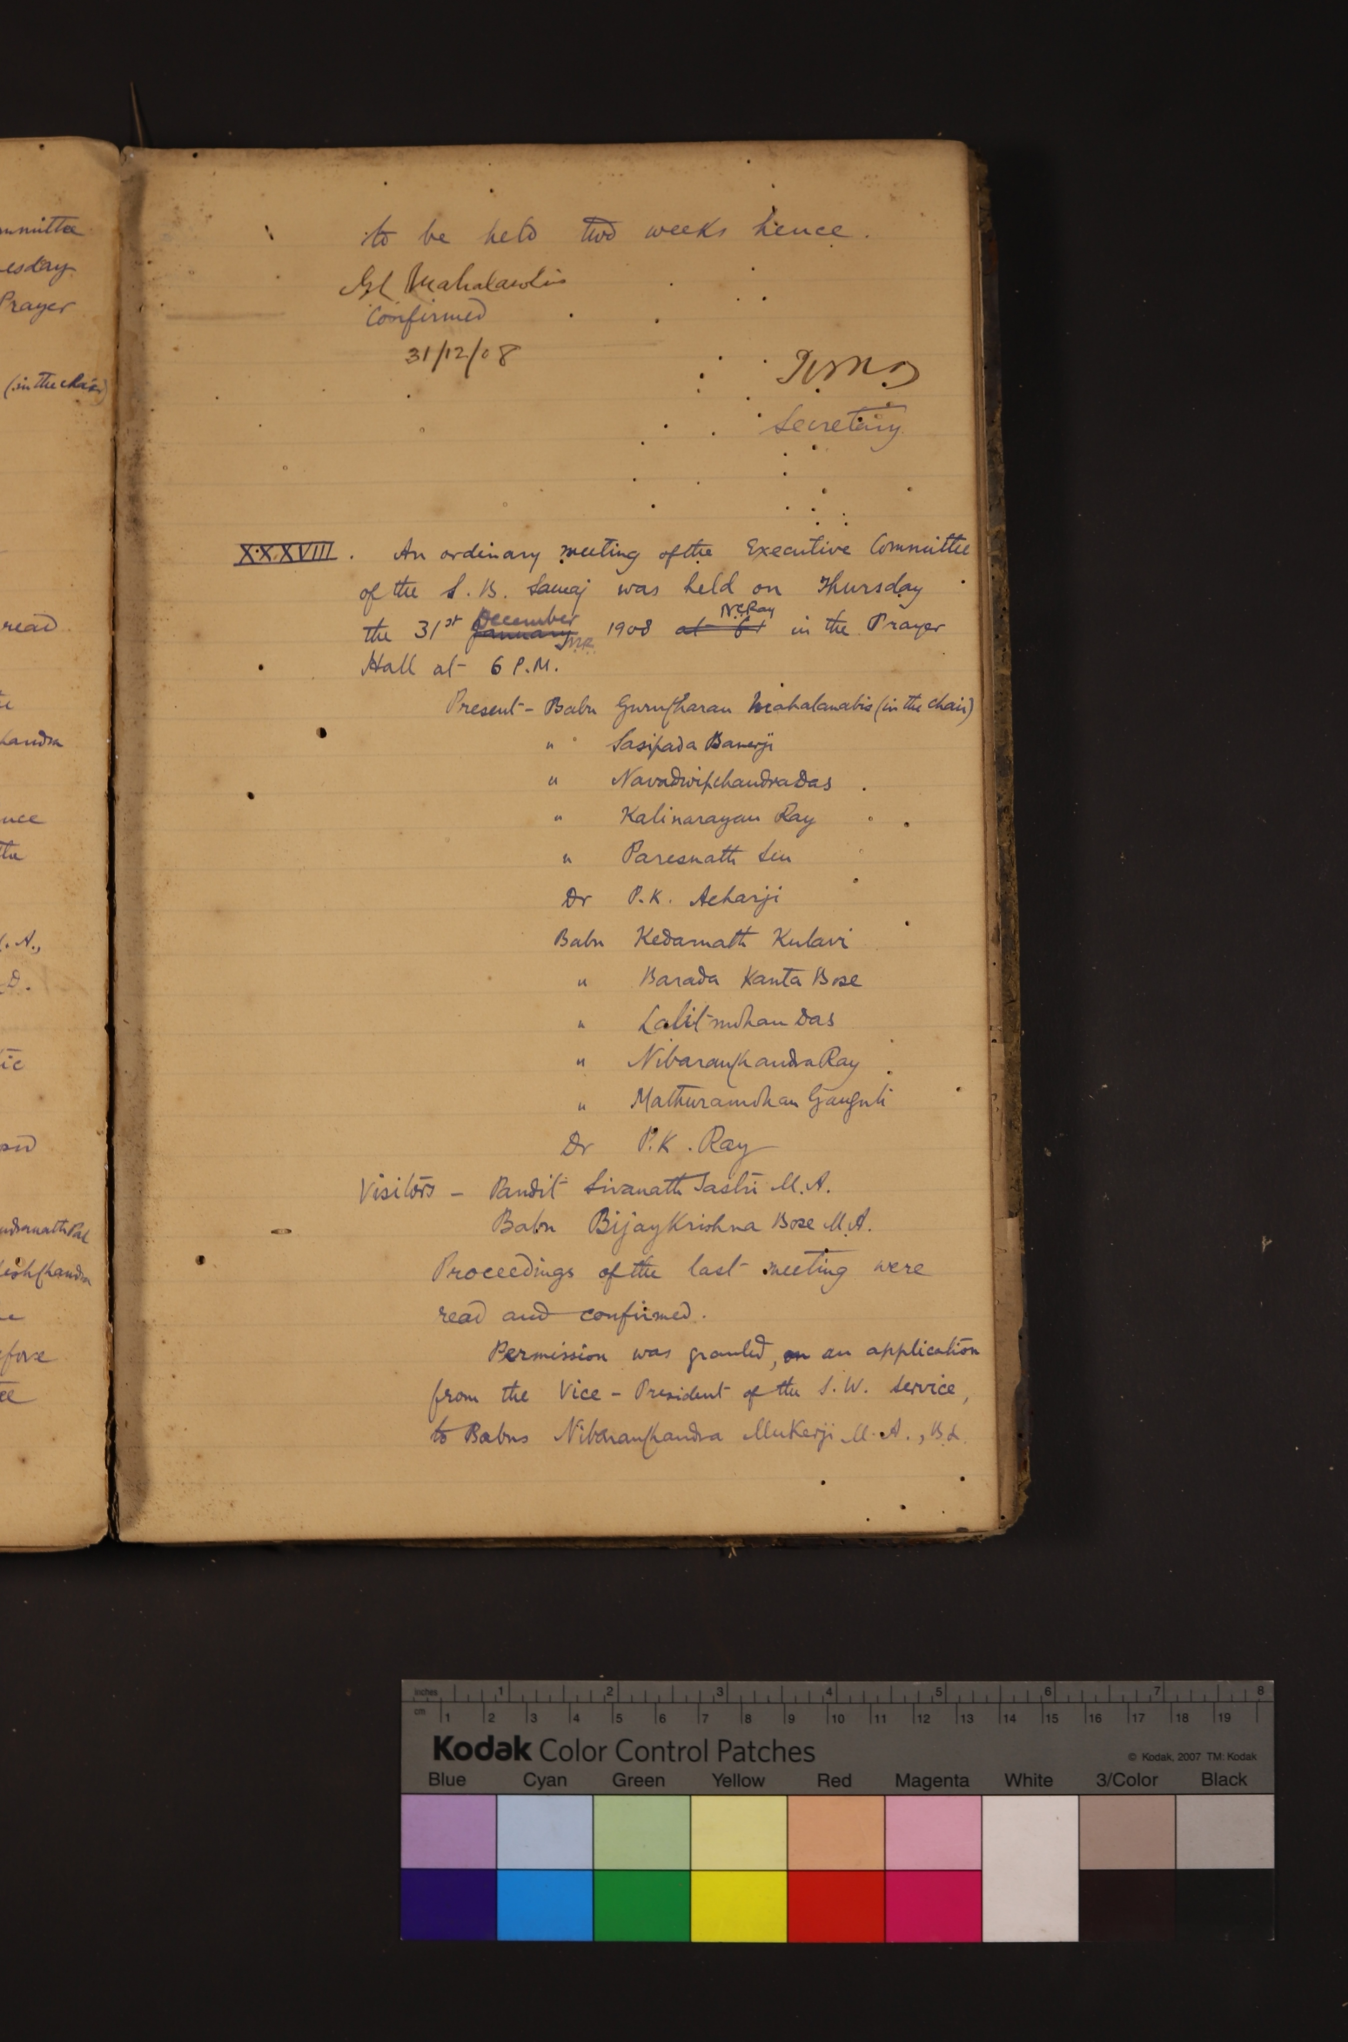 mmittee
esday
Prayer
(in the chair)
read
handra
nce
the
M.A.,
D.
tic
ndranath Pal
esh Chandra
efore
to be held two weeks hence.
G C Mahalanobis
Confirmed
31/12/08
Secretary
XXXVIII. An ordinary meeting of the Executive Committee
of the S. B. Samaj was held on Thursday
the 31st January December 1908 at 6 N.C. Ray in the Prayer
Hall at 6 P.M.
Present - Babu Guru Charan Mahalanabis (in the chair)
" Sasipada Banerji
" Navadwipchandra Das
" Kalinarayan Ray
" Paresnath Sen
Dr P.K. Acharji
Babu Kedarnath Kulavi
" Barada Kanta Bose
" Lalitmohan Das
" Nibaran Chandra Ray
" Mathuramohan Ganguli
Dr P.K. Ray
Visitors - Pandit Sivanath Sastri M.A.
Babu Bijay Krishna Bose M.A.
Proceedings of the last meeting were
read and confirmed.
Permission was granted, on an application
from the Vice-President of the S.W. Service,
to Babus Nibaran Chandra Mukerji M.A., B.L
inches 1 2 3 4 5 6 7 8
cm 1 2 3 4 5 6 7 8 9 10 11 12 13 14 15 16 17 18 19
Kodak Color Control Patches © Kodak, 2007 TM: Kodak
Blue Cyan Green Yellow Red Magenta White 3/Color Black